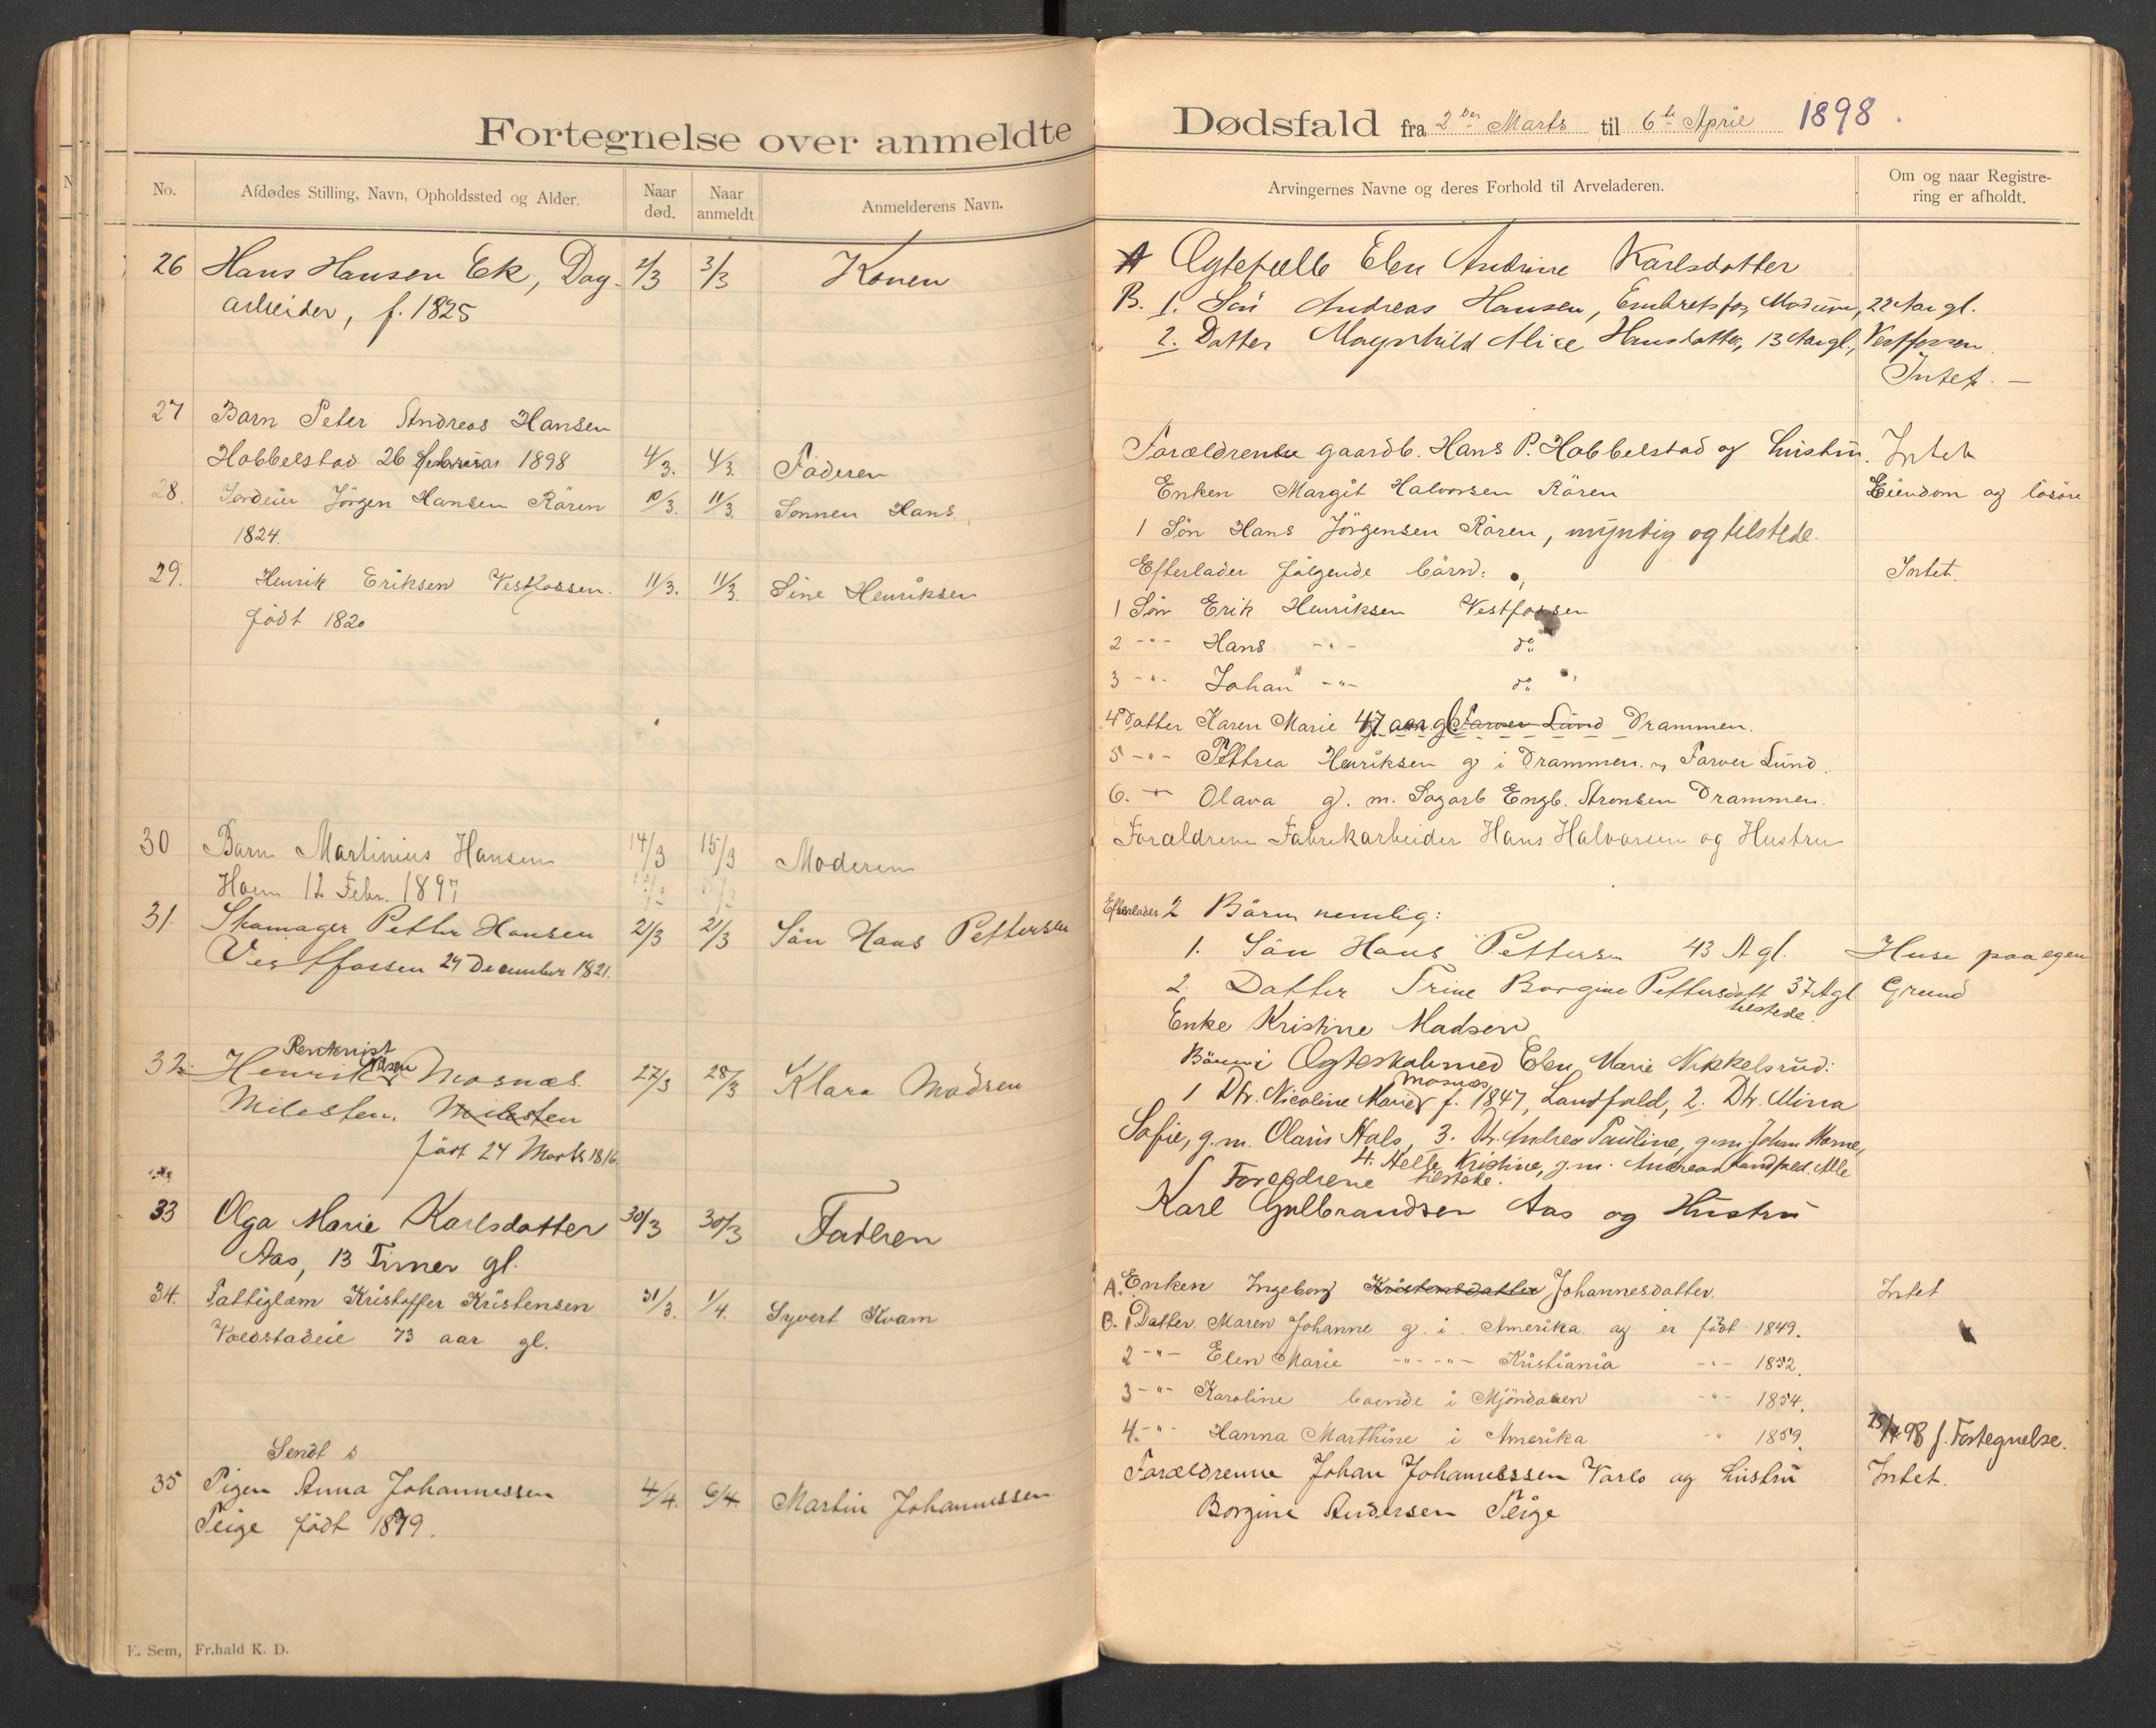 Fortegnelse over anmeldte
No.
Afdødes Stilling, Navn, Opholdssted og Alder.
Naar død.
Naar anmeldt
Anmelderens Navn.
26 Hans Hansen Ek, Dag- 2/3 3/3 Konen
arbeider, f. 1825
27 Barn Peter Andreas Hansen
Hobbelstad 26 februar 1898 4/3. 4/3. Faderen
28. Jordeier Jörgen Hansen Rören 10/3. 11/3. Sønnen Hans.
1824.
29. Henrik Eriksen Vestfossen. 11/3. 11/3. Sine Henriksen
født 1820
30 Barn Martinius Hansen 14/3 15/3 Moderen
Hoen 12 Febr. 1897
31. Skomager Petter Hansen 21/3 21/3 Sön Hans Pettersen
Vestfossen 29 December 1821.
Rentenist
32. Henrik Nilsen Mosnæs. 27/3 28/3 Klara Madsen
Milesten. Milesten
født 24 Marts 1816
33 Olga Marie Karlsdatter 30/3 30/3 Faderen
Aas, 13 Timer gl.
34. Fattiglem Kristoffer Kristensen 31/3. 1/4. Syvert Kvam
Voldstadeie 73 aar gl.
Sendt s
35 Pigen Anna Johannessen 4/4. 6/4. Martin Johannessen
Teige født 1879.
E. Sem, Fr.hald K. D.
Dødsfald fra 2den Marts til 6te April 1898.
Arvingernes Navne og deres Forhold til Arveladeren.
Om og naar Registre-
ring er afholdt.
A Egtefælle Elen Andrine Karlsdatter
B. 1. Sön Andreas Hansen, Embretsfos, Modum, 22 Aar gl.
2. Datter Magnhild Alice Hansdatter, 13 Aar gl., Vestfossen
Intet. —
Forældrene gaardb. Hans P. Hobbelstad og hustru. Intet
Enken Margit Halvorsen Rören Eiendom og løsøre
1 Sön Hans Jörgensen Rören, myndig og tilstede.
Efterlader følgende börn: Intet.
1 Søn Erik Henriksen Vestfossen
2 -"- Hans -"- do
3 -"- Johan -"- do
4 Datter Karen Marie 47 aar g Farver Lund Drammen.
5 -"- Pettrea Henriksen g i Drammen. m Farver Lund.
6. -"- Olava g. m. Sagarb Engb. Aronsen Drammen.
Forældrene Fabrikarbeider Hans Halvorsen og Hustru
Efterlader 2 Börn nemlig:
1. Sön Hans Pettersen 43 A gl. Huse paa egen
2. Datter Trine Borgine Pettersdatt 37 A gl Grund
tilstede.
Enke Kristine Madsen
Börn i Ægteskab med Elen Marie Nikkelsrud:
1 Dtr. Nicoline Marie Mosnæs f. 1847, Landfald, 2. Dtr. Mina
Sofie, g.m. Olaus Hals, 3. Dtr. Andrea Pauline, g.m. Johan Horne,
4. Helle Kristine, g.m. Andreas Landfald. Alle
tilstede.
Forældrene
Karl Gulbrandsen Aas og Hustru
A. Enken Ingeborg Kristensdatter Johannesdatter. Intet
B. 1 Datter. Maren Johanne g. i. Amerika. og er født 1849.
2 -"- Elen Marie -"- -"- Kristiania -"- 1852.
3 -"- Karoline boende i Mjöndalen -"- 1854.
4. -"- Hanna Marthine i Amerika -"- 1859. 25/4 98 f. Fortegnelse.
Forældrenne Johan Johannessen Varlo og hustru Intet.
Borgine Andersen Teige